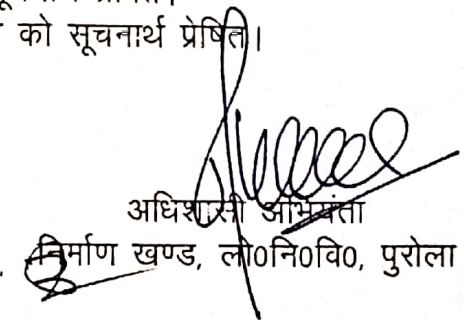 को सूचनार्थ प्रेषित।
अधिशासी अभियंता
निर्माण खण्ड, लो०नि०वि०, पुरोला